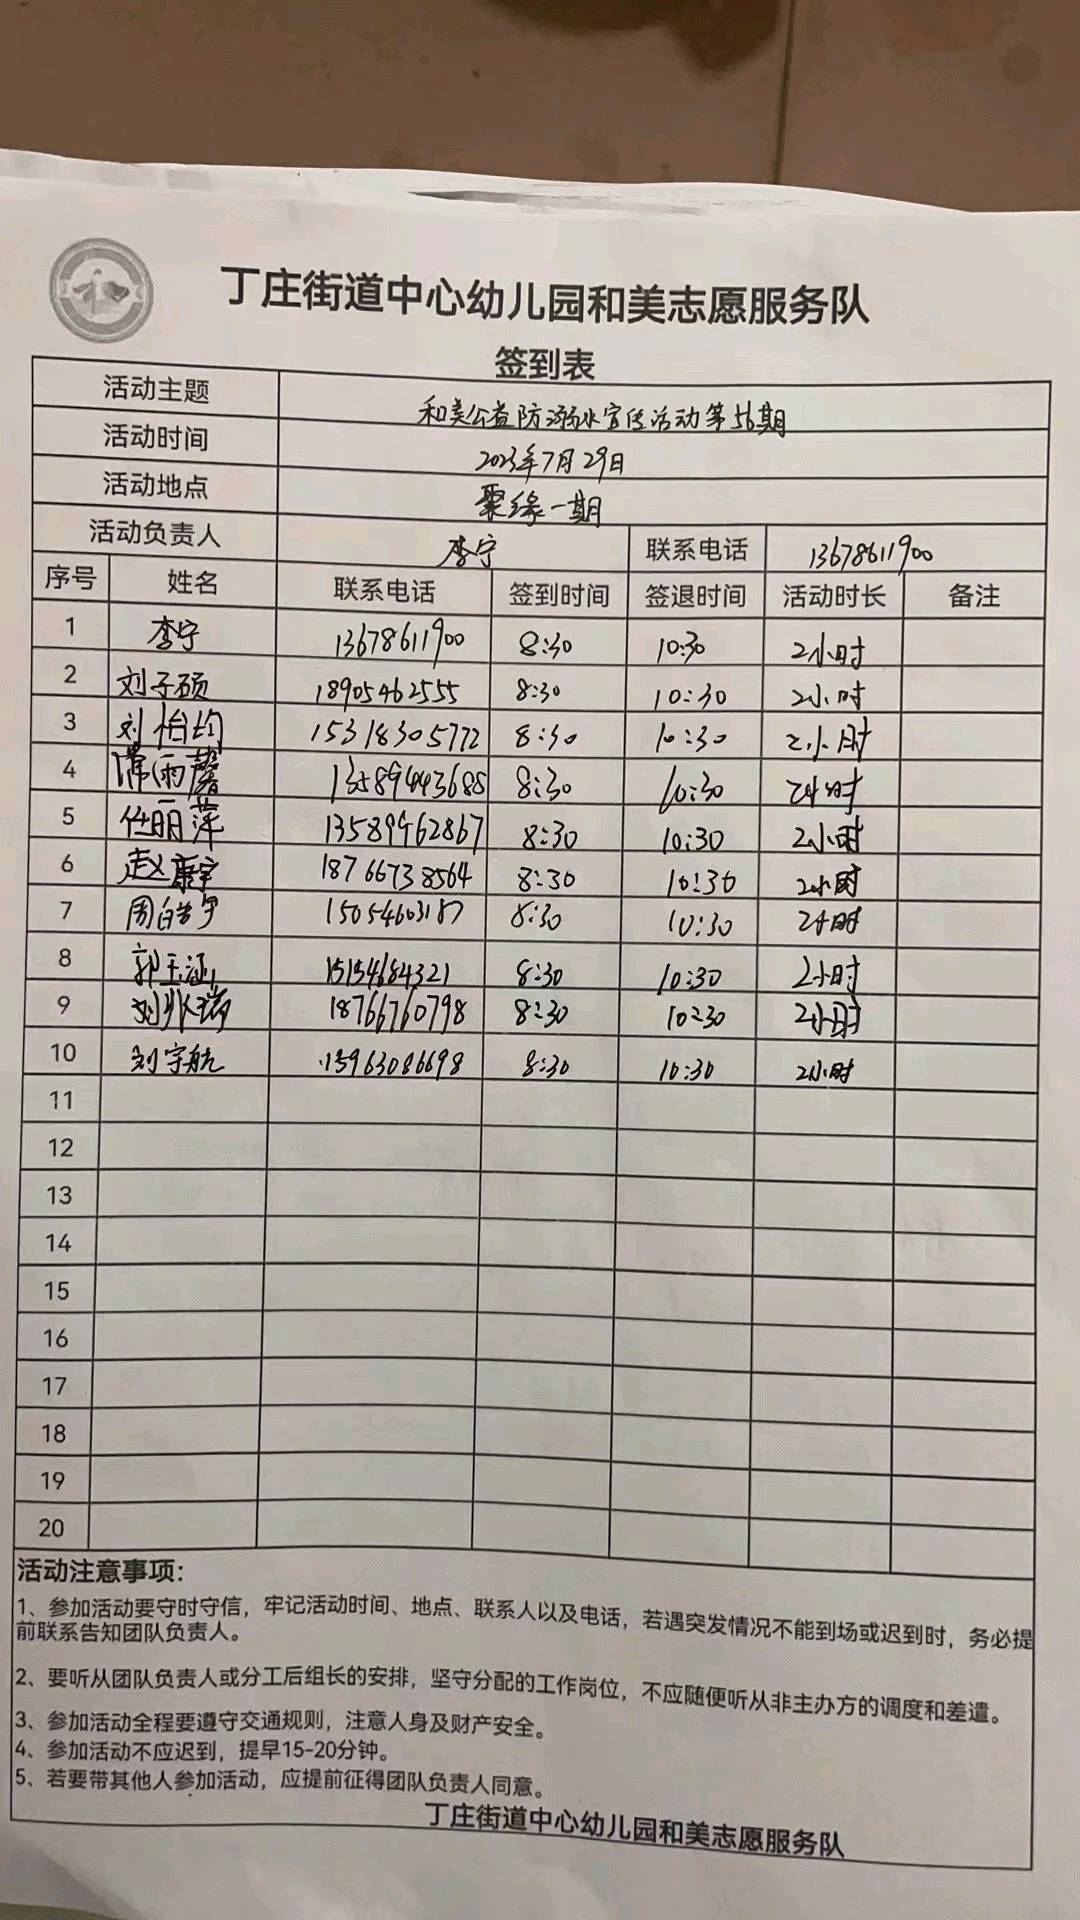 丁庄街道中心幼儿园和美志愿服务队
签到表
活动主题 和美公益防溺水宣传活动第56期
活动时间 2023年7月29日
活动地点 聚缘一期
活动负责人 李宁 联系电话 13678611900
序号 姓名 联系电话 签到时间 签退时间 活动时长 备注
1 李宁 13678611900 8:30 10:30 2小时
2 刘子硕 18905462555 8:30 10:30 2小时
3 刘怡均 15318305772 8:30 10:30 2小时
4 常雨馨 13589443688 8:30 10:30 2小时
5 任丽萍 13589962867 8:30 10:30 2小时
6 赵康宇 18766738564 8:30 10:30 2小时
7 周皓宇 15054603187 8:30 10:30 2小时
8 郭玉涵 15154684321 8:30 10:30 2小时
9 18766760798 8:30 10:30 2小时
10 刘宇航 15963086698 8:30 10:30 2小时
11
12
13
14
15
16
17
18
19
20
活动注意事项：
1、参加活动要守时守信，牢记活动时间、地点、联系人以及电话，若遇突发情况不能到场或迟到时，务必提
前联系告知团队负责人。
2、要听从团队负责人或分工后组长的安排，坚守分配的工作岗位，不应随便听从非主办方的调度和差遣。
3、参加活动全程要遵守交通规则，注意人身及财产安全。
4、参加活动不应迟到，提早15-20分钟。
5、若要带其他人参加活动，应提前征得团队负责人同意。
丁庄街道中心幼儿园和美志愿服务队